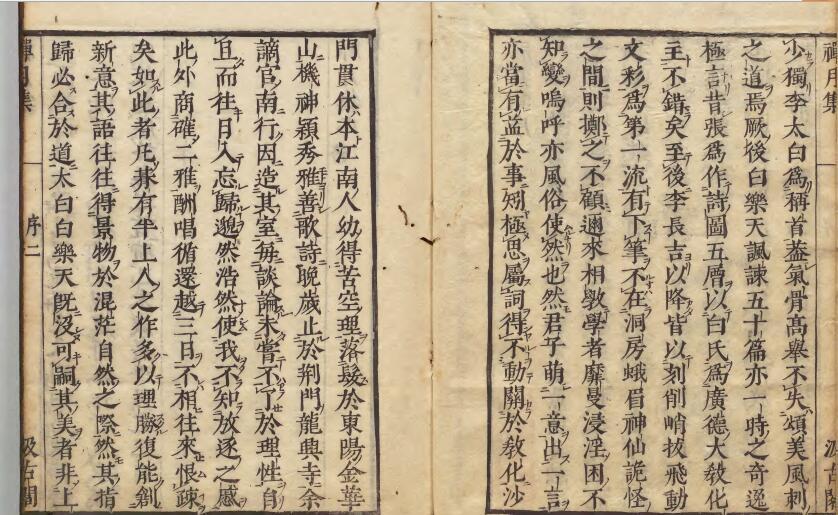 禪月集
汲古閣
少獨李太白爲稱首葢氣骨高舉不失頌美風刺
之道焉厥後白樂天諷諫五十篇亦一時之奇逸
極言昔張爲作詩圖五層以白氏爲廣德大敎化
主不錯矣至後李長吉以降皆以刻削峭拔飛動
文彩爲第一流有下筆不在洞房蛾眉神仙詭怪
之間則擲之不顧邇來相斅學者靡曼浸淫困不
知變嗚呼亦風俗使然也然君子萌一意出一言
亦當有益於事矧極思屬詞得不動關於敎化沙
門貫休本江南人幼得苦空理落髮於東陽金華
山機神穎秀雅善歌詩晚歲止於荆門龍興寺余
謫官南行因造其室每談論未嘗不了於理性自
旦而往日入忘歸邈然浩然使我不知放逐之慼
此外商確二雅酬唱循還越三日不相往來恨疎
矣如此者凡朞有半上人之作多以理勝復能創
新意其語往往得景物於混茫自然之際然其指
歸必合於道太白白樂天旣没可嗣其美者非上
禪月集
序二
汲古閣